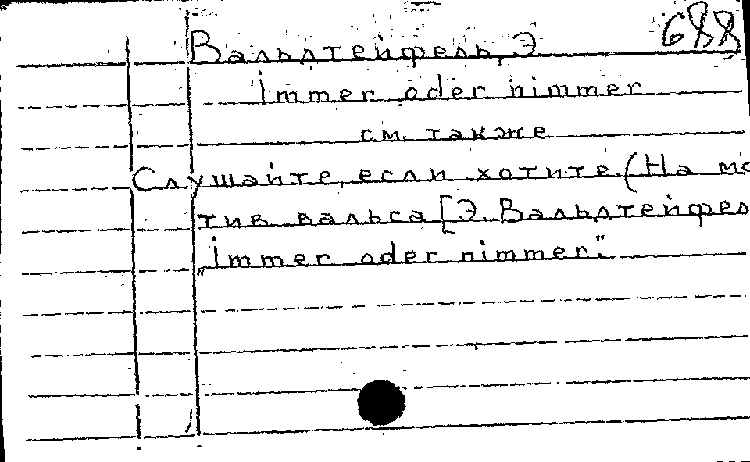 688
Вальдтейфель, Э
Immer oder nimmer
см. также
Слушайте, если хотите (На мо
тив вальса [Э. Вальдтейфел
„Immer oder nimmer."